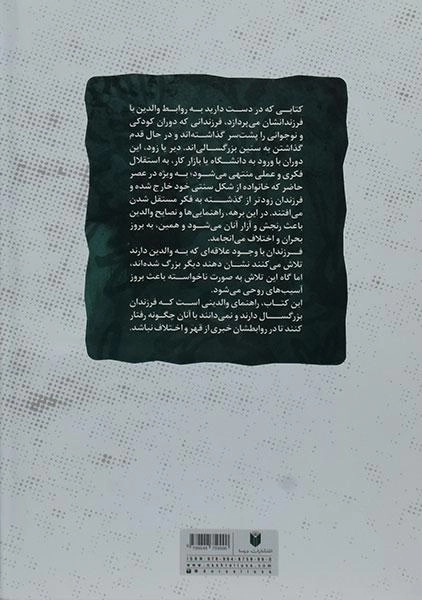 کتابی که در دست دارید به روابط والدین با
فرزندانشان می‌پردازد، فرزندانی که دوران کودکی
و نوجوانی را پشت‌سر گذاشته‌اند و در حال قدم
گذاشتن به سنین بزرگسالی‌اند. دیر یا زود، این
دوران با ورود به دانشگاه یا بازار کار، به استقلال
فکری و عملی منتهی می‌شود؛ به ویژه در عصر
حاضر که خانواده از شکل سنتی خود خارج شده و
فرزندان زودتر از گذشته به فکر مستقل شدن
می‌افتند. در این برهه، راهنمایی‌ها و نصایح والدین
باعث رنجش و آزار آنان می‌شود و همین، به بروز
بحران و اختلاف می‌انجامد.
فرزندان با وجود علاقه‌ای که به والدین دارند
تلاش می‌کنند نشان دهند دیگر بزرگ شده‌اند،
اما گاه این تلاش به صورت ناخواسته باعث بروز
آسیب‌های روحی می‌شود.
این کتاب، راهنمای والدینی است که فرزندان
بزرگسال دارند و نمی‌دانند با آنان چگونه رفتار
کنند تا در روابطشان خبری از قهر و اختلاف نباشد.